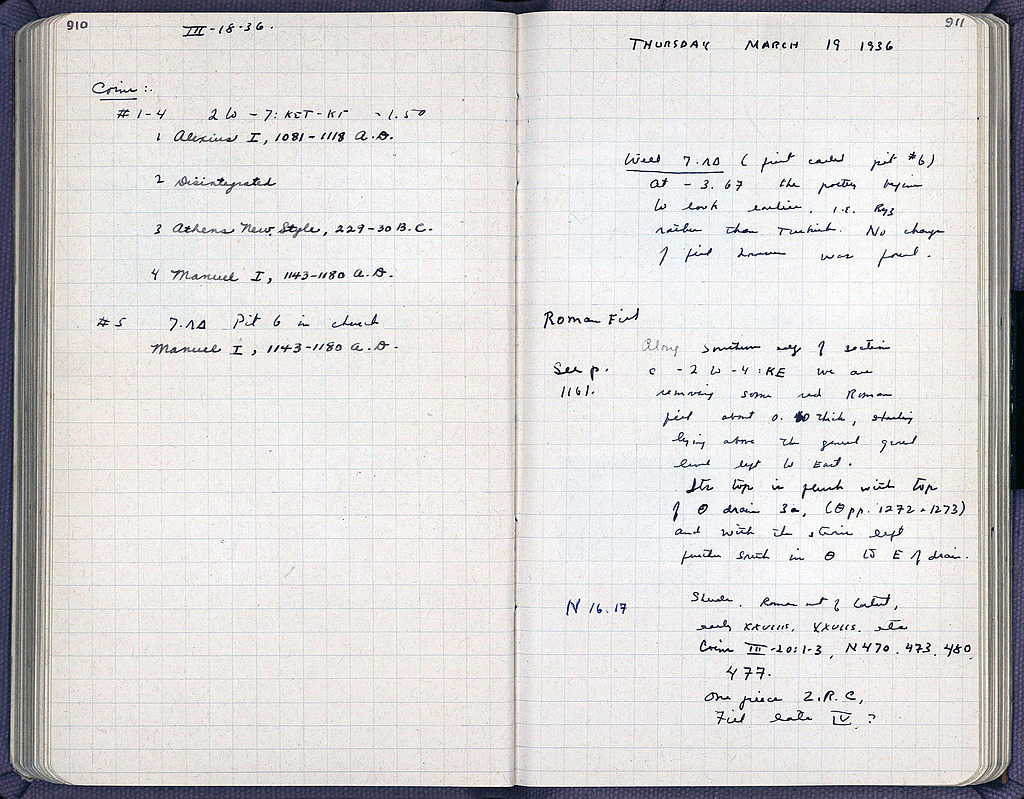 910
III-18-36.
Coins:.
#1-4 2 to -7: KST-KF -1.50
1 Alexius I, 1081-1118 A.D.
2 Disintegrated
3 Athens New Style, 229-30 B.C.
4 Manuel I, 1143-1180 A.D.
#5 7.ΛΔ Pit 6 in church
Manuel I, 1143-1180 A.D.
911
THURSDAY MARCH 19 1936
Well 7.ΛΔ (first called pit #6)
At -3.67 the pottery begins
to look earlier, i.e. Byz
rather than Turkish. No change
of fill however was found.
Roman Fill
Along southern edge of section
See p. c -2 to -4:KE we are
1161. removing some red Roman
fill about 0. thick, starting
lying above the general
level left to East.
Its top is flush with top
of Θ drain 3a, (Θ pp. 1272-1273)
and with the left
further south in Θ to E of drain.
N 16.17 Sherds. Roman not of latest,
early XXVIIIS, XXVIIS. etc
Coins III-20:1-3, N470.473.480,
477.
One piece L.R.C,
Fill late IV ?